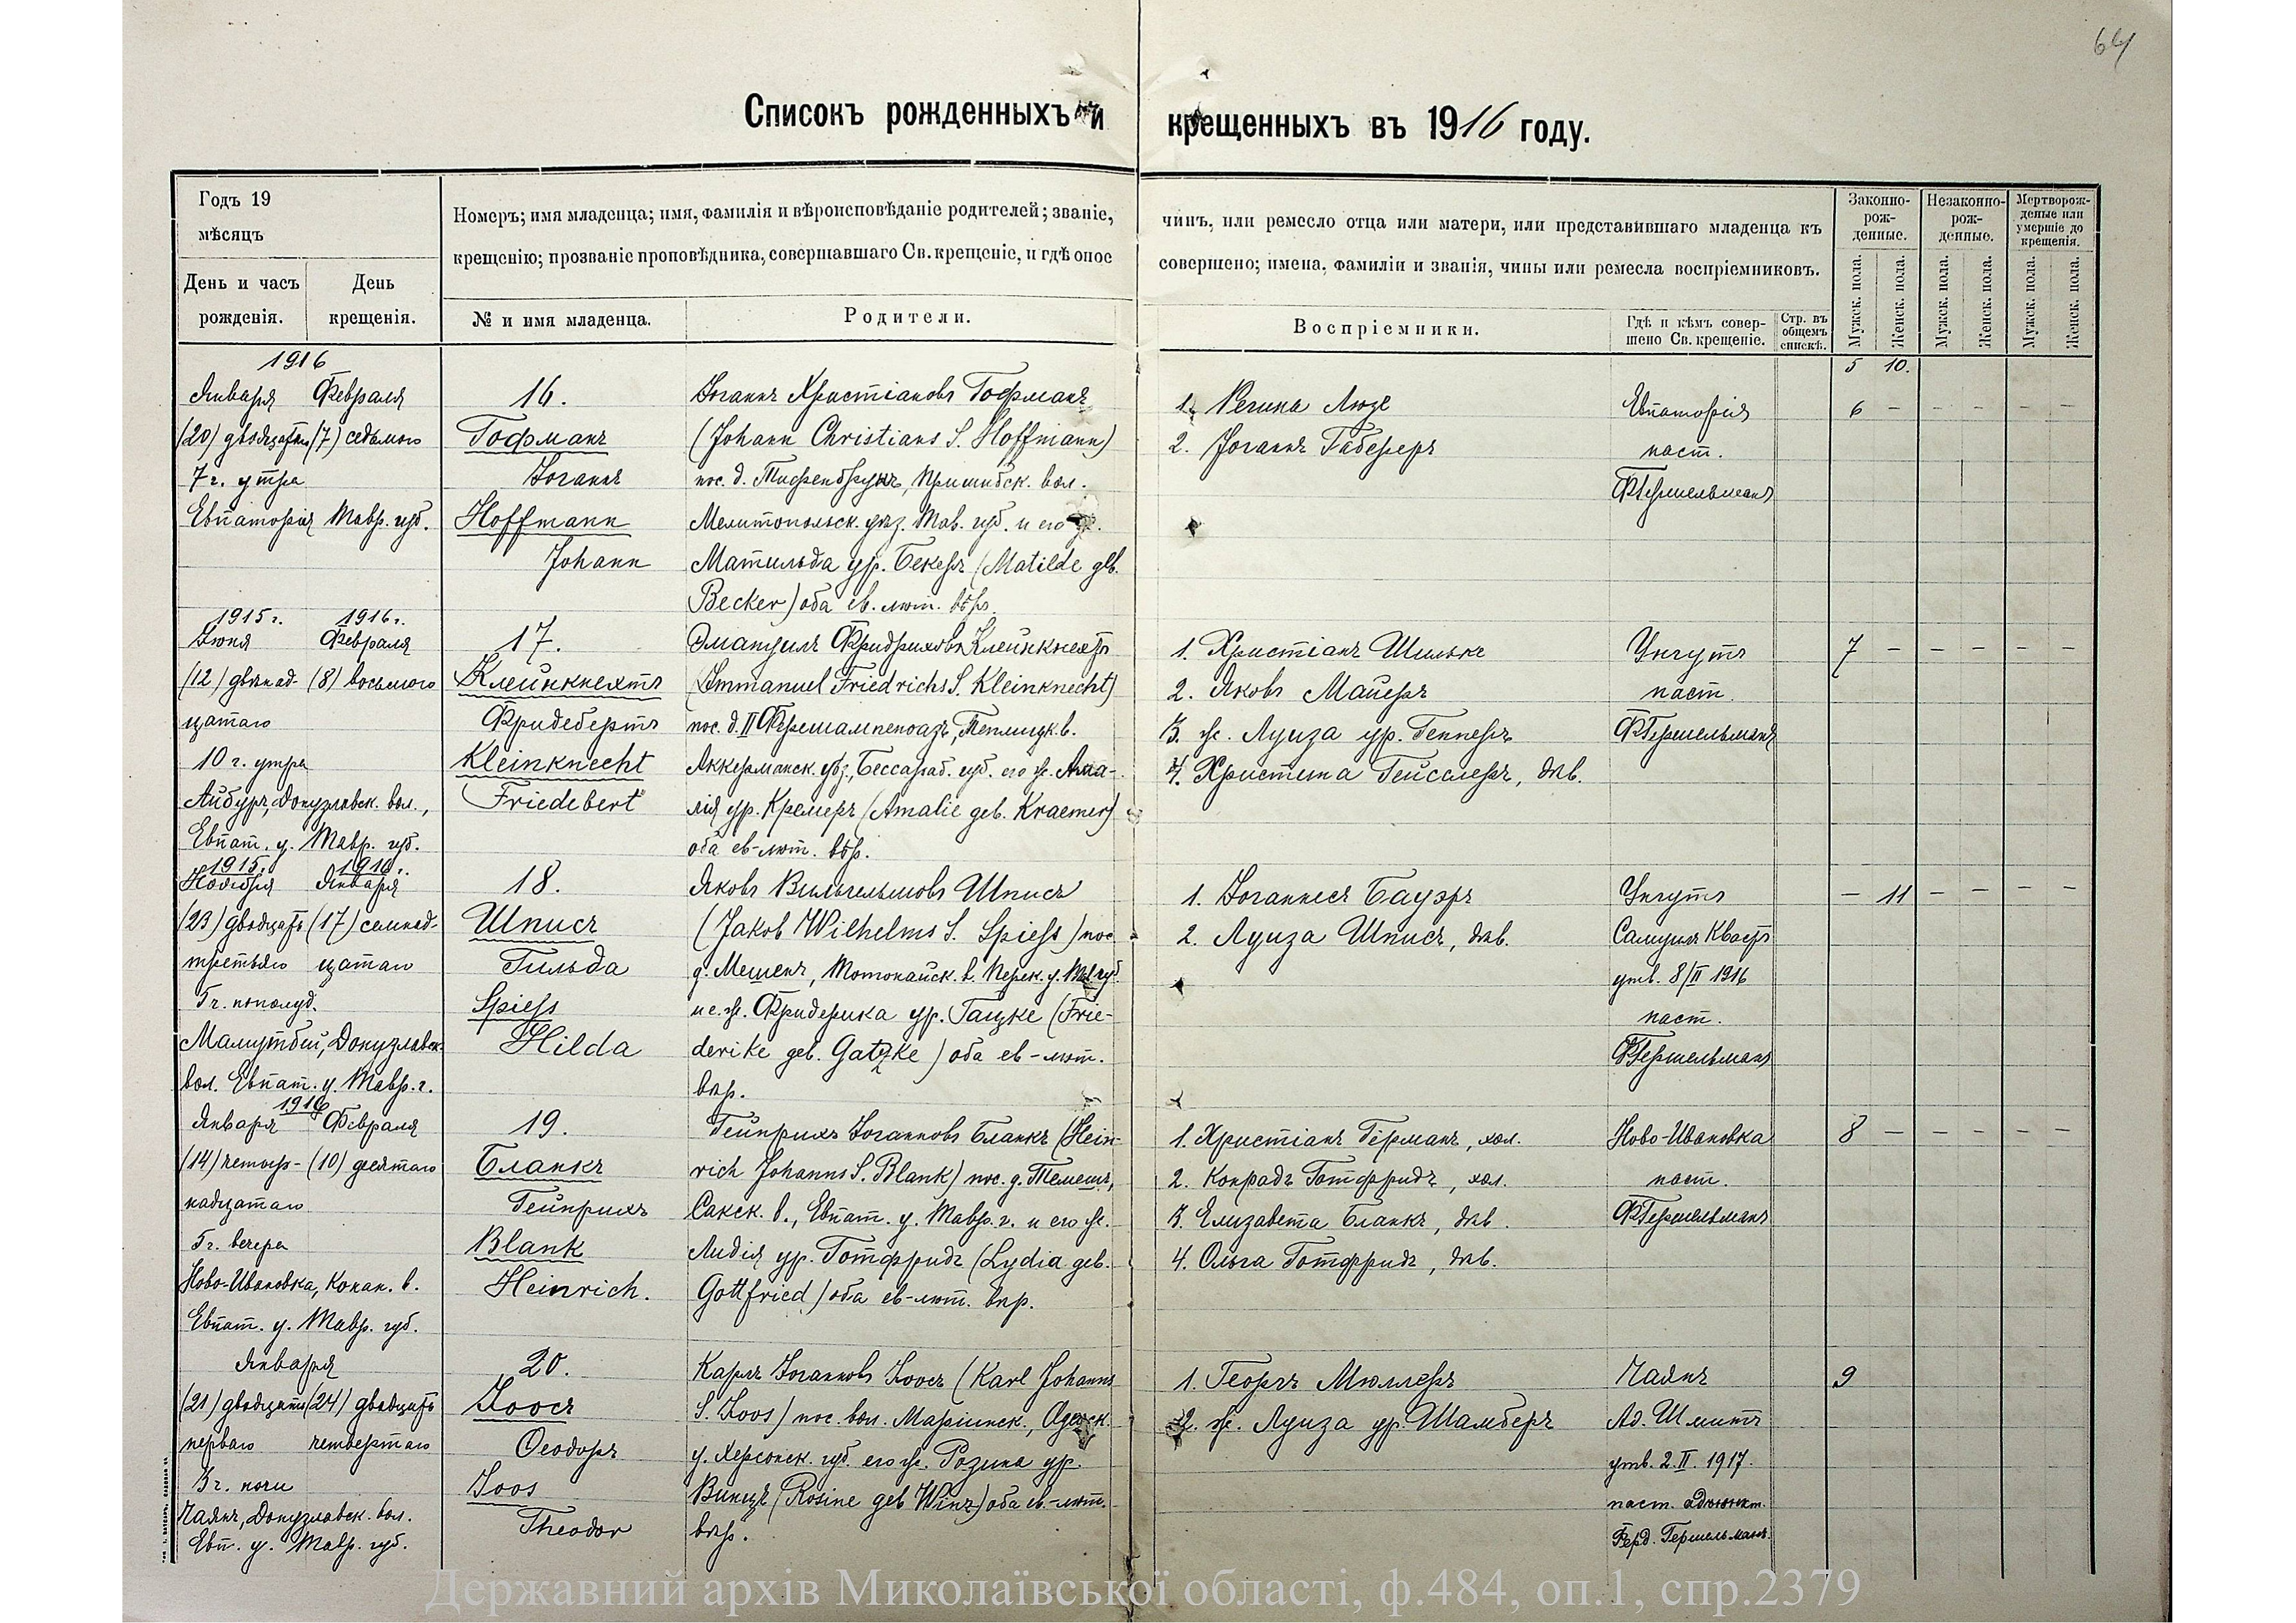 64
Списокъ рожденныхъ и крещенныхъ въ 1916 году.
Годъ 19
мѣсяцъ
День и часъ рожденія.
День крещенія.
Номеръ; имя младенца; имя, фамилія и вѣроисповѣданіе родителей; званіе, чинъ, или ремесло отца или матери, или представившаго младенца къ
крещенію; прозваніе проповѣдника, совершавшаго Св. крещеніе, и гдѣ оное совершено; имена, фамиліи и званія, чины или ремесла воспріемниковъ.
№ и имя младенца.
Родители.
Воспріемники.
Гдѣ и кѣмъ совер-
шено Св. крещеніе.
Стр. въ
общемъ
спискѣ.
Законно-
рож-
денные.
Незаконно-
рож-
денные.
Мертворож-
деные или
умершіе до
крещенія.
Мужск. пола.
Женск. пола.
Мужск. пола.
Женск. пола.
Мужск. пола.
Женск. пола.
5 10.
1916
Января Февраля
(20) двадцатаго (7) седьмого
7 г. утра
Евпаторія Тавр. губ.
16.
Гофманъ
Іоганнъ
Hoffmann
Johann
Іоганнъ Христіановъ Гофманъ
(Johann Christians S. Hoffmann)
пос. д. Тифенбрунъ, Пришибск. вол.
Мелитопольск. уѣз. Тав. губ. и его ж.
Матильда ур. Бекеръ (Matilde geb.
Becker) оба ев. лют. вѣр.
1. Регина Люзе
2. Іоганнъ Габереръ
Евпаторія
паст.
ФГершельманъ
6 - - - - -
1915 г. 1916 г.
Іюня Февраля
(12) двѣнад- (8) восьмого
цатаго
10 г. утра
Айбуръ, Донузлавск. вол.,
Евпат. у. Тавр. губ.
17.
Клейнкнехтъ
Фридебертъ
Kleinknecht
Friedebert
Эмануилъ Фридриховъ Клейнкнехтъ
(Immanuel Friedrichs S. Kleinknecht)
пос. д. II Фершампенуазъ, Теплицк. в.
Аккерманск. уѣз., Бессараб. губ. его ж. Ама-
лія ур. Кремеръ (Amalie geb. Kraemer)
оба ев-лют. вѣр.
1. Христіанъ Шилькъ
2. Яковъ Майеръ
3. ж. Луиза ур. Геннеръ
4. Христина Гейсслеръ, дѣв.
Унгутъ
паст.
ФГершельманъ
7 - - - - -
1915 г. 1916 г.
Ноября Января
(23) двадцать (17) семнад-
третьяго цатаго
5 г. пополуд.
Малумбай, Донузлавск.
вол. Евпат. у. Тавр. г.
18.
Шписъ
Гильда
Spiess
Hilda
Яковъ Вильгельмовъ Шписъ
(Jakob Wilhelms S. Spiess) пос.
д. Мешенъ, Тотонайск. в. Перек. у. Тав. губ.
и е. ж. Фридерика ур. Гацке (Frie-
derike geb. Gatzke) оба ев-лют.
вѣр.
1. Іоганнесъ Бауэръ
2. Луиза Шписъ, дѣв.
Унгутъ
Самуилъ Квастъ
утв. 8/II 1916
паст.
ФГершельманъ
- 11 - - - -
1916
Января Февраля
(14) четыр- (10) десятаго
надцатаго
5 г. вечера
Ново-Ивановка, Конан. в.
Евпат. у. Тавр. губ.
19.
Бланкъ
Гейнрихъ
Blank
Heinrich.
Гейнрихъ Іоганновъ Бланкъ (Hein-
rich Johanns S. Blank) пос. д. Темешъ,
Сакск. в., Евпат. у. Тавр. г. и его ж.
Лидія ур. Готфридъ (Lydia geb.
Gottfried) оба ев-лют. вѣр.
1. Христіанъ Германъ, хол.
2. Конрадъ Готфридъ, хол.
3. Елизавета Бланкъ, дѣв.
4. Ольга Готфридъ, дѣв.
Ново-Ивановка
паст.
ФГершельманъ
8 - - - - -
Января
(21) двадцать (24) двадцать
перваго четвертаго
3 г. ночи
Чаянъ, Донузлавск. вол.
Евп. у. Тавр. губ.
20.
Лоосъ
Ѳеодоръ
Loos
Theodor
Карлъ Іоганновъ Лоосъ (Karl Johanns
S. Loos) пос. вол. Маріинск., Одесск.
у. Херсонск. губ. его ж. Розина ур.
Винцъ (Rosine geb Winz) оба ев-лют.
вѣр.
1. Георгъ Мюллеръ
2. ж. Луиза ур. Шамберъ
Чаянъ
Ад. Шмитъ
утв. 2.II. 1917.
паст. адъюнкт.
Ферд. Гершельманъ.
9
Державний архів Миколаївської області, ф.484, оп.1, спр.2379